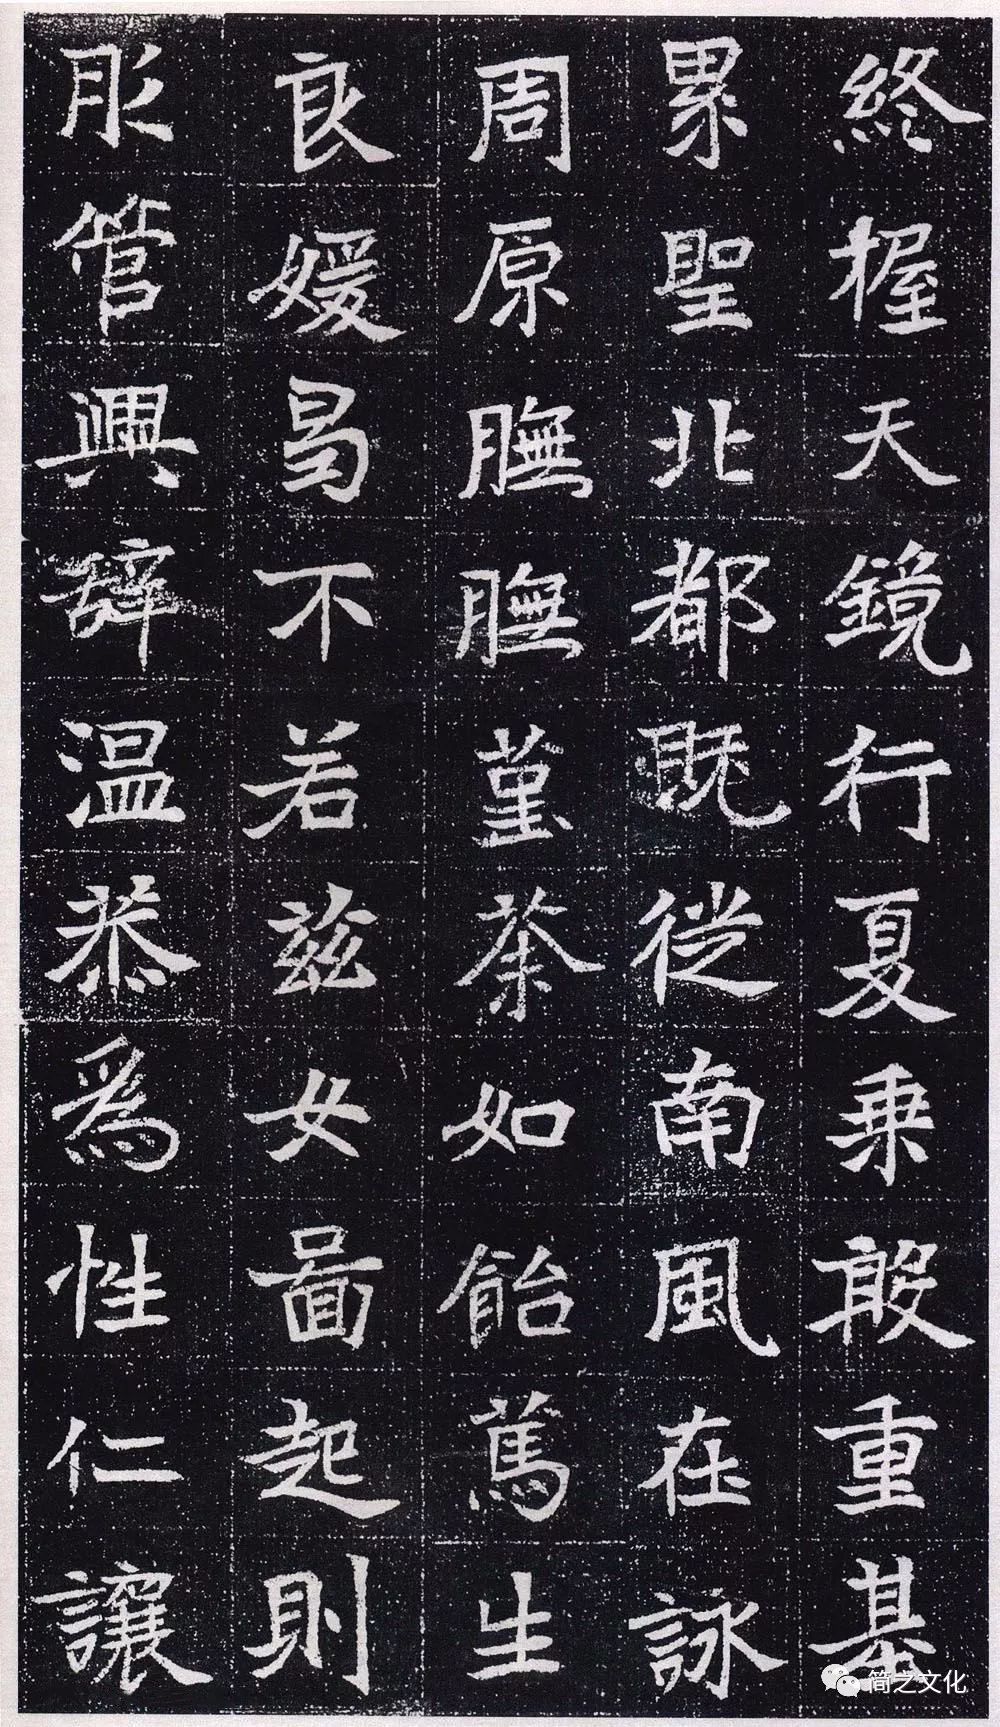 終握天鏡行夏乗敢重基
累聖北都既從南風在詠
周原膴膴堇荼如飴篤生
良媛曷不若茲女啚起則
彤管興辞温恭爲性仁讓
简之文化